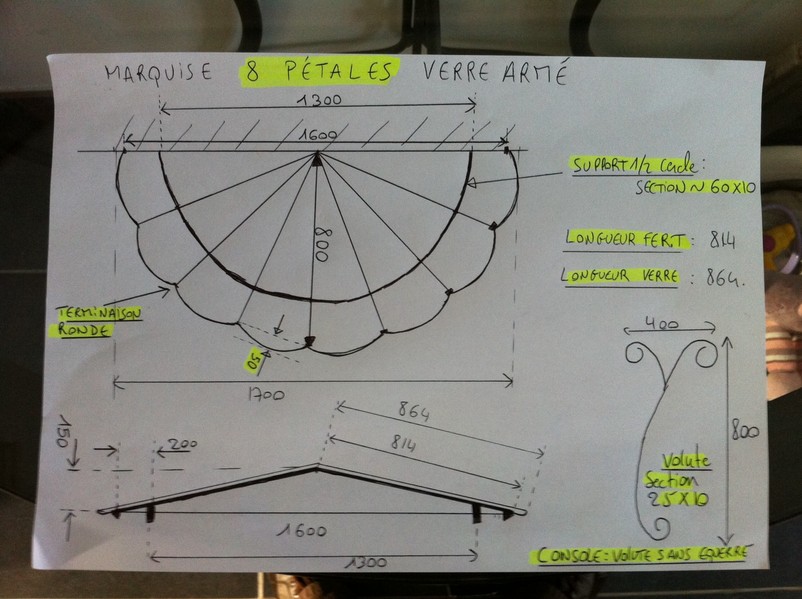 MARQUISE 8 PÉTALES VERRE ARMÉ
1300
1600
SUPPORT 1/2 Cercle :
SECTION ~ 60X10
800
LONGUEUR FER.T : 814
LONGUEUR VERRE : 864.
TERMINAISON
RONDE
50
1700
400
800
Volute
Section
25X10
CONSOLE : VOLUTE SANS EQUERRE
864
814
150
200
1600
1300